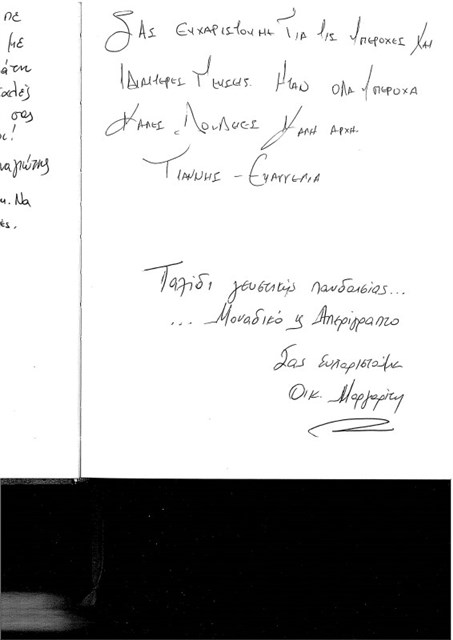 πε
με
σας
Να
Σας ευχαριστουμε Για τις υπεροχες και
Ιδιαιτερες Γευσεις. Ηταν ολα υπεροχα
Καλες Δουλειες Καλη αρχη.
Γιαννης – Ευαγγελια
Ταξίδι γευστικής πανδαισίας...
... Μοναδικό & Απερίγραπτο
Σας ευχαριστούμε
Οικ. Μαργαρίτη